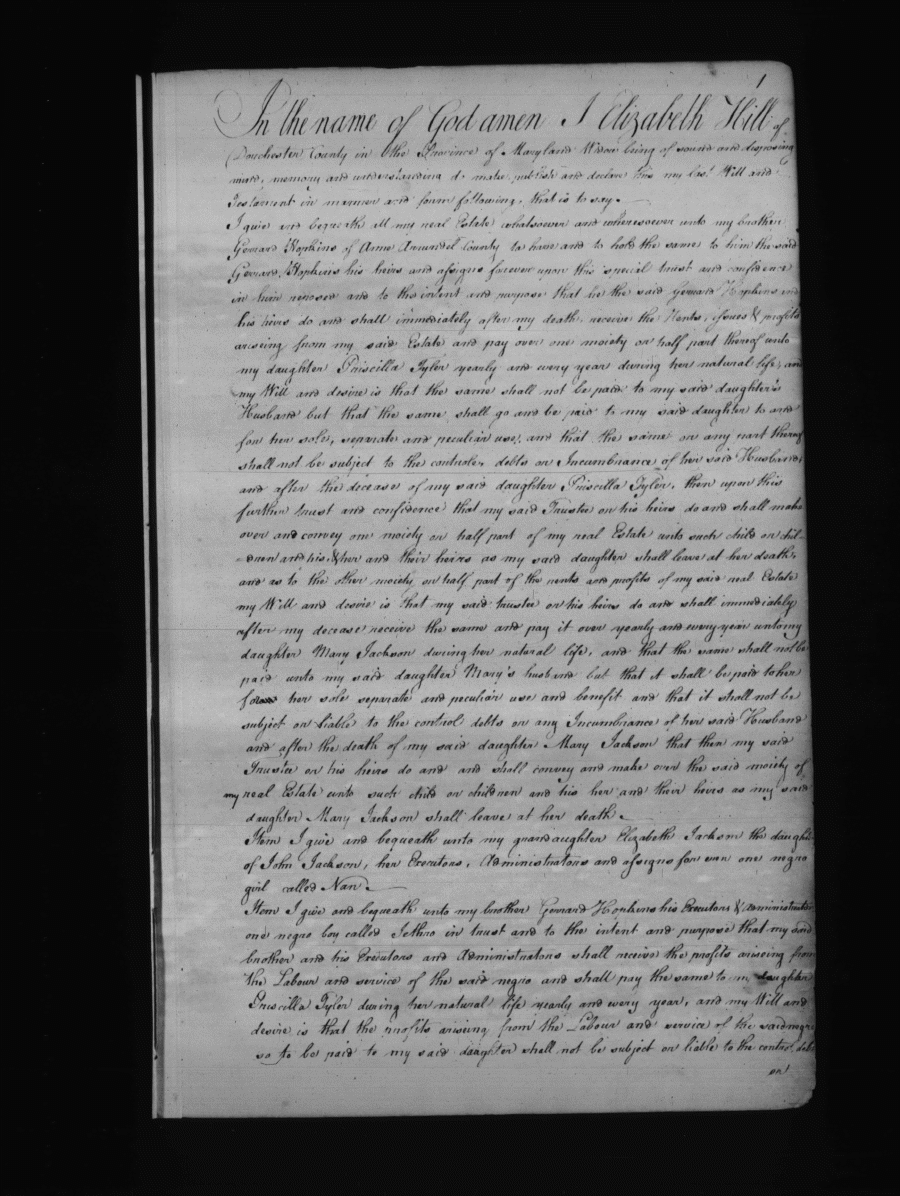 1
In the name of God amen I Elizabeth Hill of
Dorchester County in the Province of Maryland Widow being of sound and disposing
mind, memory and understanding do make publish and declare this my last Will and
Testament in manner and form following, that is to say.
I give and bequeath all my real Estate whatsoever and wheresoever unto my brother
Gerrard Hopkins of Anne Arundel County to have and to hold the same to him the said
Gerrard Hopkins his heirs and assigns forever upon this special trust and confidence
in him reposed and to this intent and purpose that he the said Gerrard Hopkins and
his heirs do and shall immediately after my death, receive the Rents, issues & profits
ariseing from my said Estate and pay over one moiety or half part thereof unto
my daughter Priscilla Tyler yearly and every year during her natural life, and
my Will and desire is that the same shall not be paid to my said daughter's
Husband but that the same shall go and be paid to my said daughter to and
for her sole, separate and peculiar use, and that the same or any part thereof
shall not be subject to the controle, debts or Incumbrance of her said Husband,
and after the decease of my said daughter Priscilla Tyler, then upon this
further trust and confidence that my said Trustee or his heirs do and shall make
over and convey one moiety or half part of my real Estate unto such child or chil-
-dren and his & her and their heirs as my said daughter shall leave at her death,
and as to the other moiety or half part of the rents and profits of my said real Estate
my Will and desire is that my said trustee or his heirs do and shall immediately
after my decease receive the same and pay it over yearly and every year unto my
daughter Mary Jackson during her natural life, and that the same shall not be
paid unto my said daughter Mary's husband but that it shall be paid to her
for her sole separate and peculiar use and benefit and that it shall not be
subject or liable to the control debts or any Incumbrance of her said Husband
and after the death of my said daughter Mary Jackson that then my said
Trustee or his heirs do and and shall convey and make over the said moiety of
my real Estate unto such child or children and his her and their heirs as my said
daughter Mary Jackson shall leave at her death.
Item I give and bequeath unto my grandaughter Elizabeth Jackson the daughter
of John Jackson, her Executors, Administrators and assigns for ever one negro
girl called Nan.
Item I give and bequeath unto my brother Gerrard Hopkins his Executors & administrators
one negro boy called Jethro in trust and to the intent and purpose that my said
brother and his Executors and Administrators shall receive the profits ariseing from
the Labour and service of the said negro and shall pay the same to my daughter
Priscilla Tyler during her natural life yearly and every year, and my Will and
desire is that the profits arising from the Labour and service of the said negro
so to be paid to my said daughter shall not be subject or liable to the control debts
or